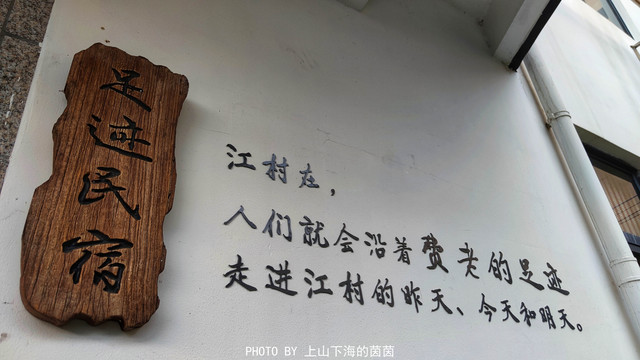 足迹民宿
江村在，
人们就会沿着费老的足迹
走进江村的昨天、今天和明天。
PHOTO BY 上山下海的茵茵